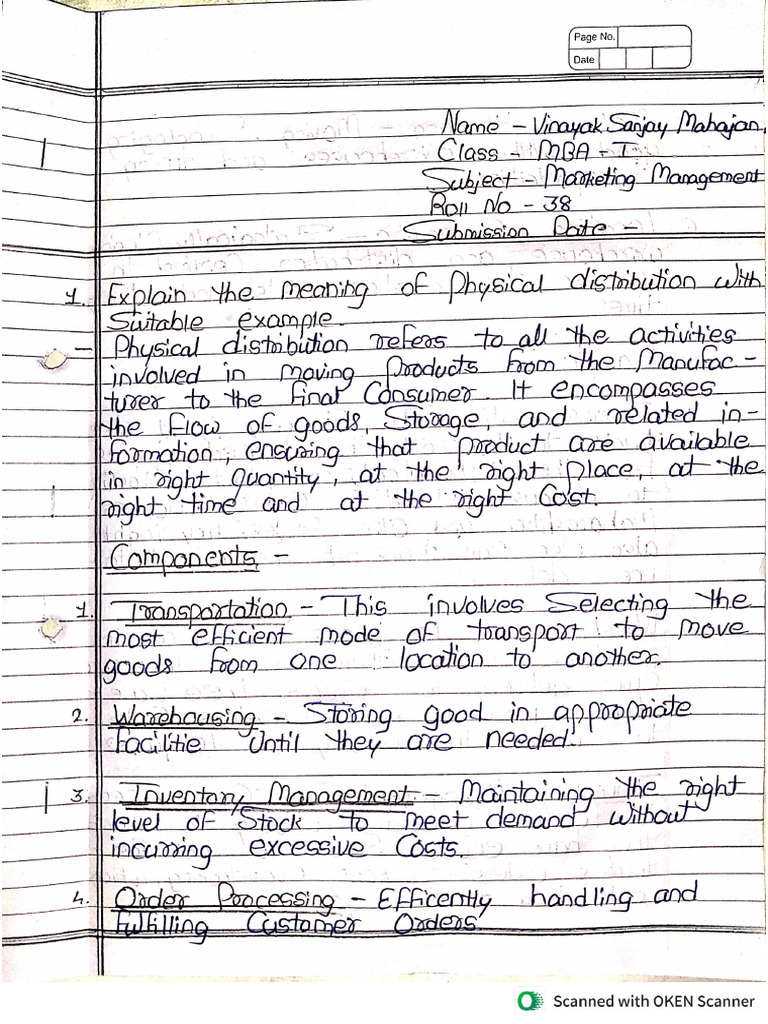 Page No.
Date
Name - Vinayak Sanjay Mahajan.
Class - MBA - I
Subject - Marketing Management
Roll No - 38
Submission Date -
1. Explain the meaning of Physical distribution with
Suitable example.
- Physical distribution refers to all the activities
involved in moving products from the Manufac-
turer to the final Consumer. It encompasses
the flow of goods, Storage, and related in-
formation, ensuring that product are available
in right quantity, at the right place, at the
right time and at the right Cost.
Components -
1. Transportation - This involves Selecting the
most efficient mode of transport to move
goods from one location to another.
2. Warehousing - Storing good in appropriate
facilitie Until they are needed.
3. Inventory Management - Maintaining the right
level of Stock to meet demand without
incurring excessive Costs.
4. Order Processing - Efficently handling and
fulfilling Customer Orders.
Scanned with OKEN Scanner